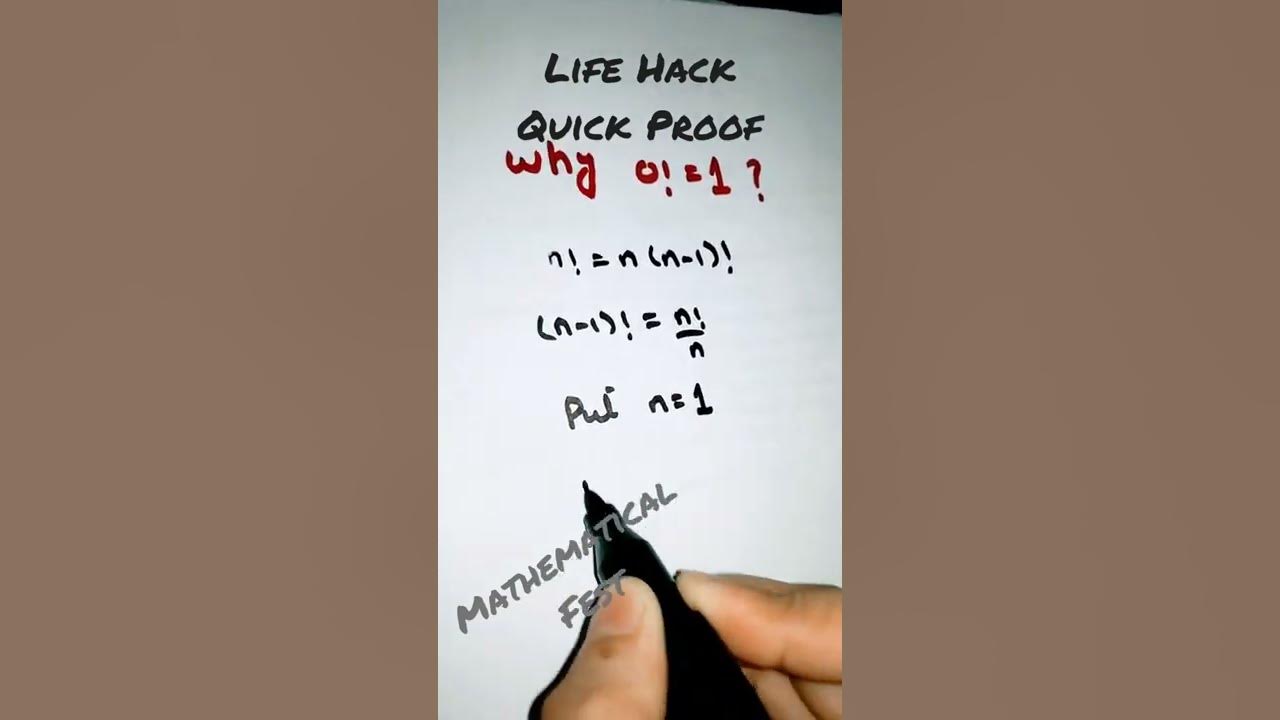 LIFE HACK
QUICK PROOF
Why 0! = 1 ?
n! = n (n-1)!
(n-1)! = n!/n
Put n = 1
MATHEMATICAL
FEST